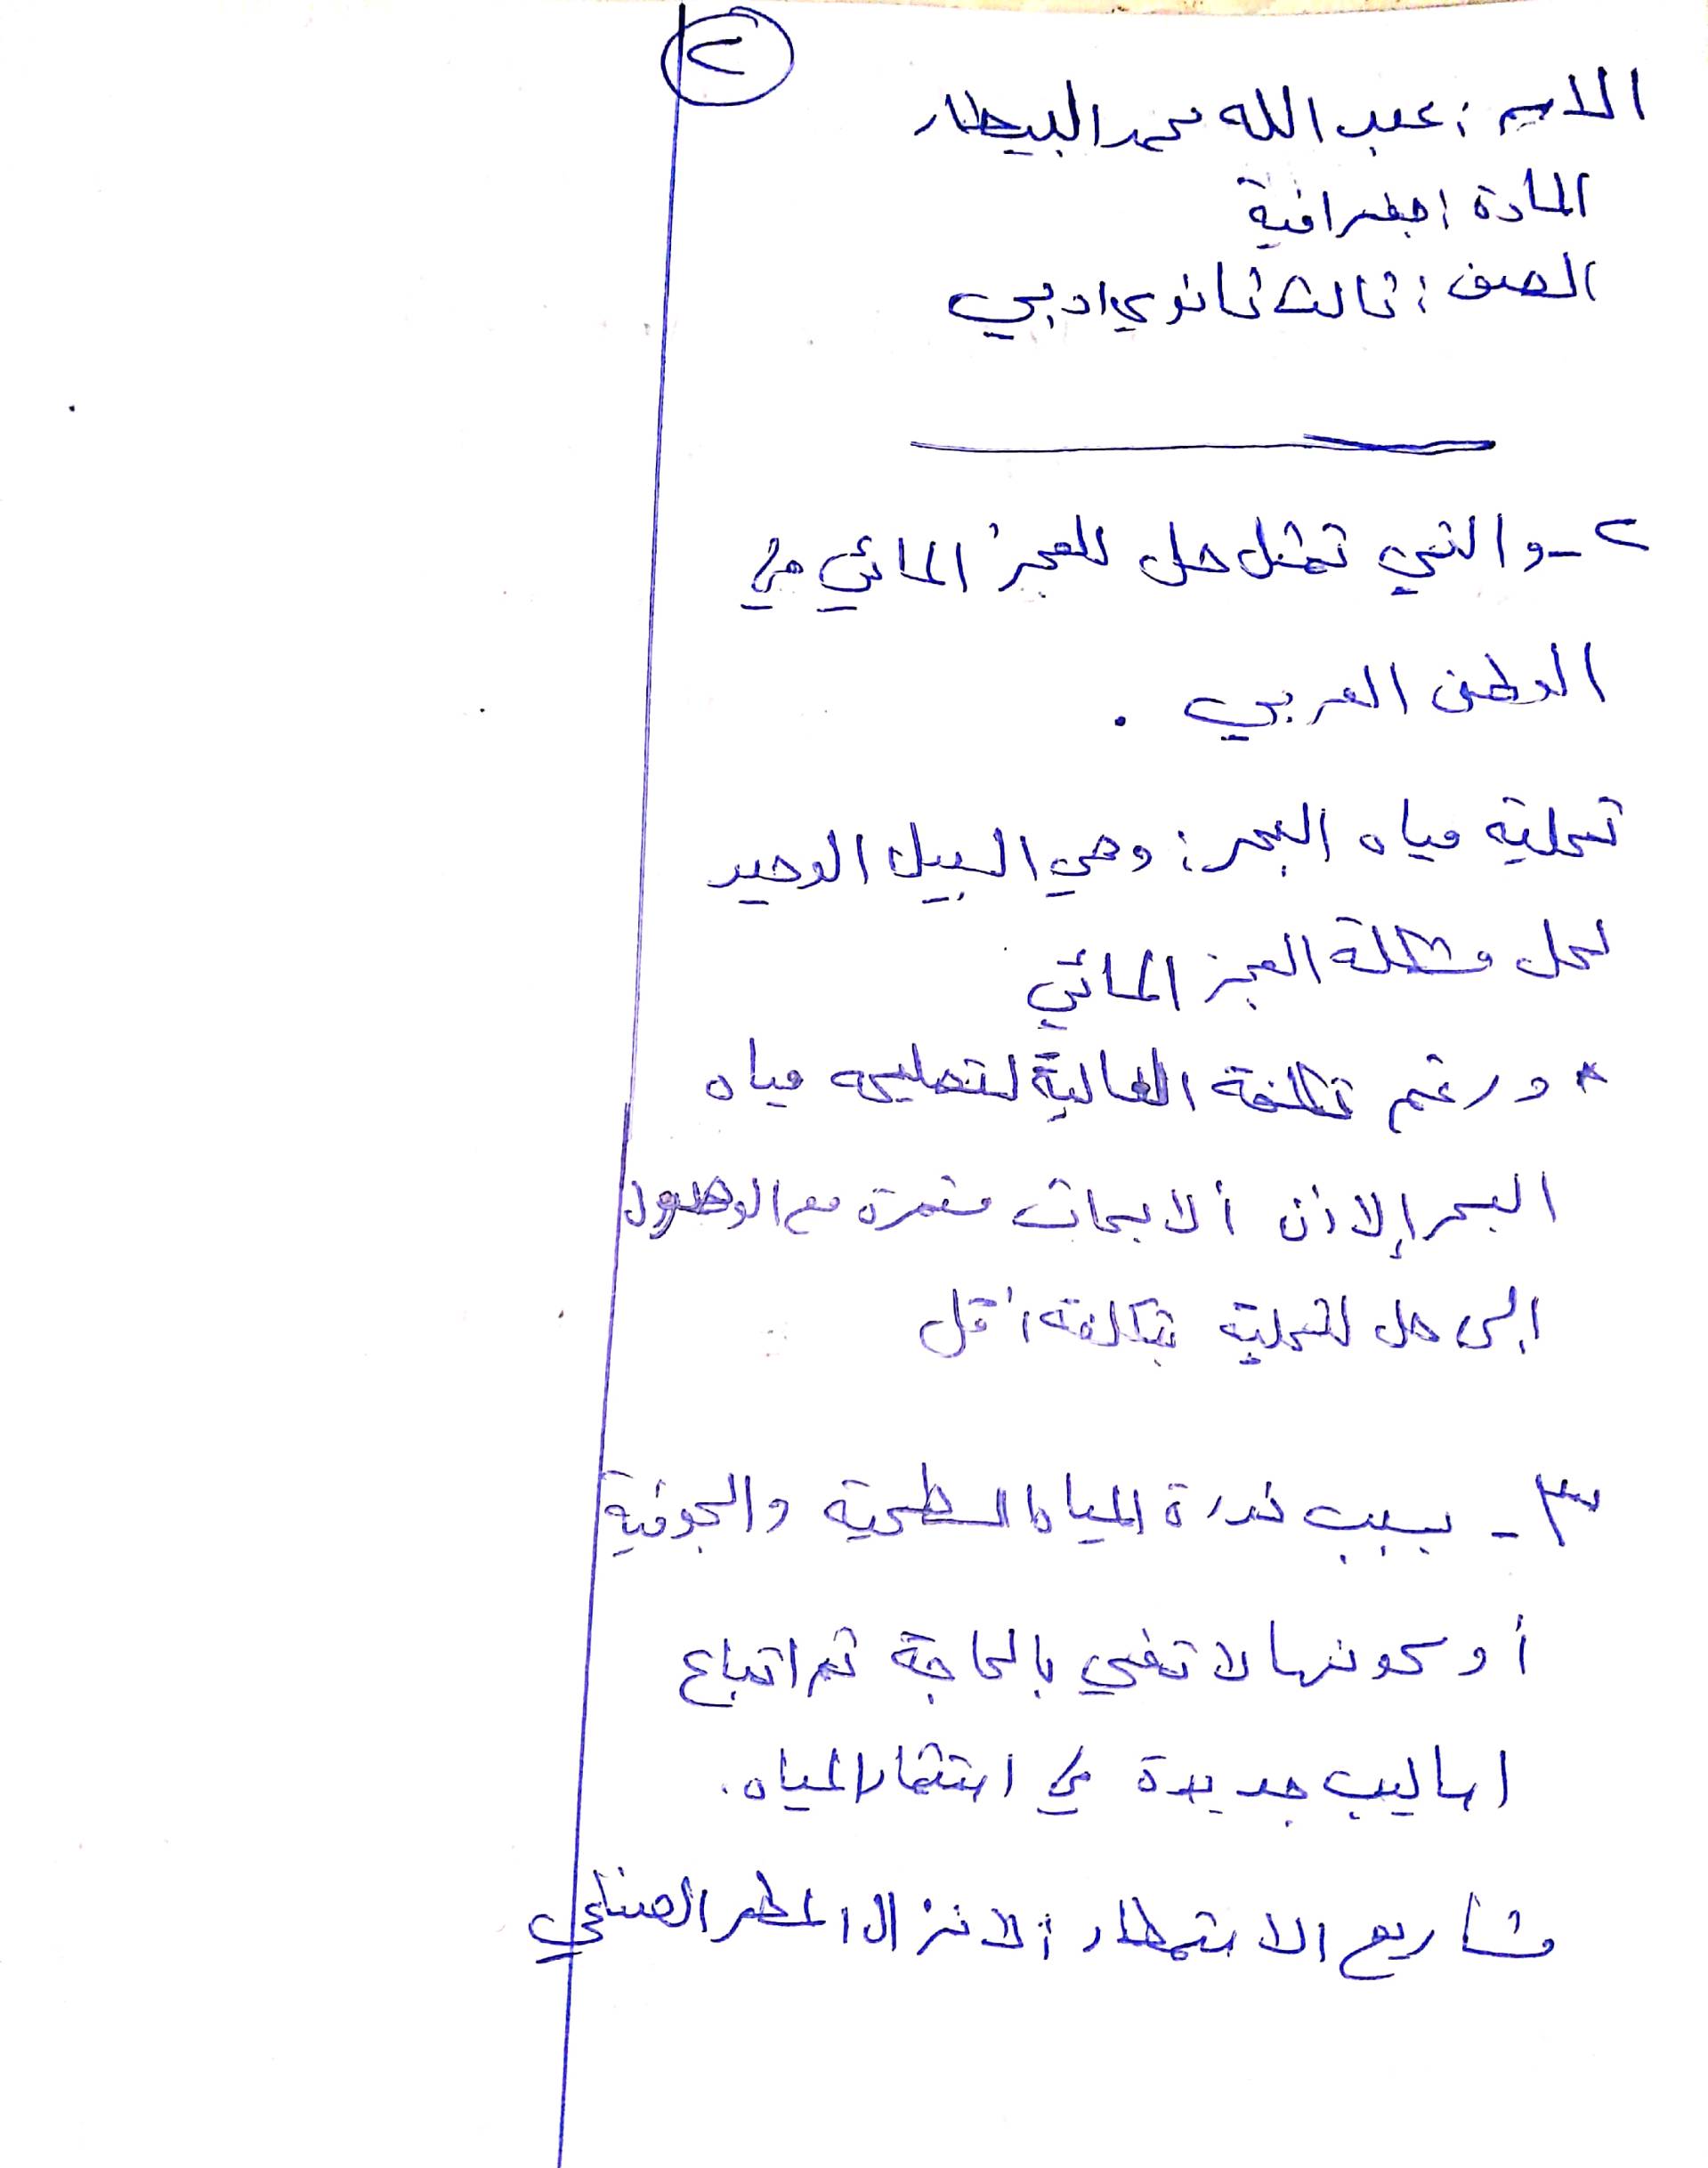 ٢
الاسم : عبد الله محمد البيطار
المادة : جغرافية
الصف : ثالث ثانوي ادبي
٢ - والتي تمثل حل للعجز المائي في
الوطن العربي .
تحلية مياه البحر : وهي السبيل الوحيد
لحل مشكلة العجز المائي
* ورغم تكلفة العالية لتحليه مياه
البحر إلا أن ألابحاث مستمرة مع الوصول
إلى حل لتحلية بتكلفة أقل
٣ - بسبب ندرة المياه السطحية والجوفية
أو كونها لا تفي بالحاجة تم اتباع
اساليب جديدة في استثمار المياه .
مشاريع الاستمطار : لانزال المطر الصنعي